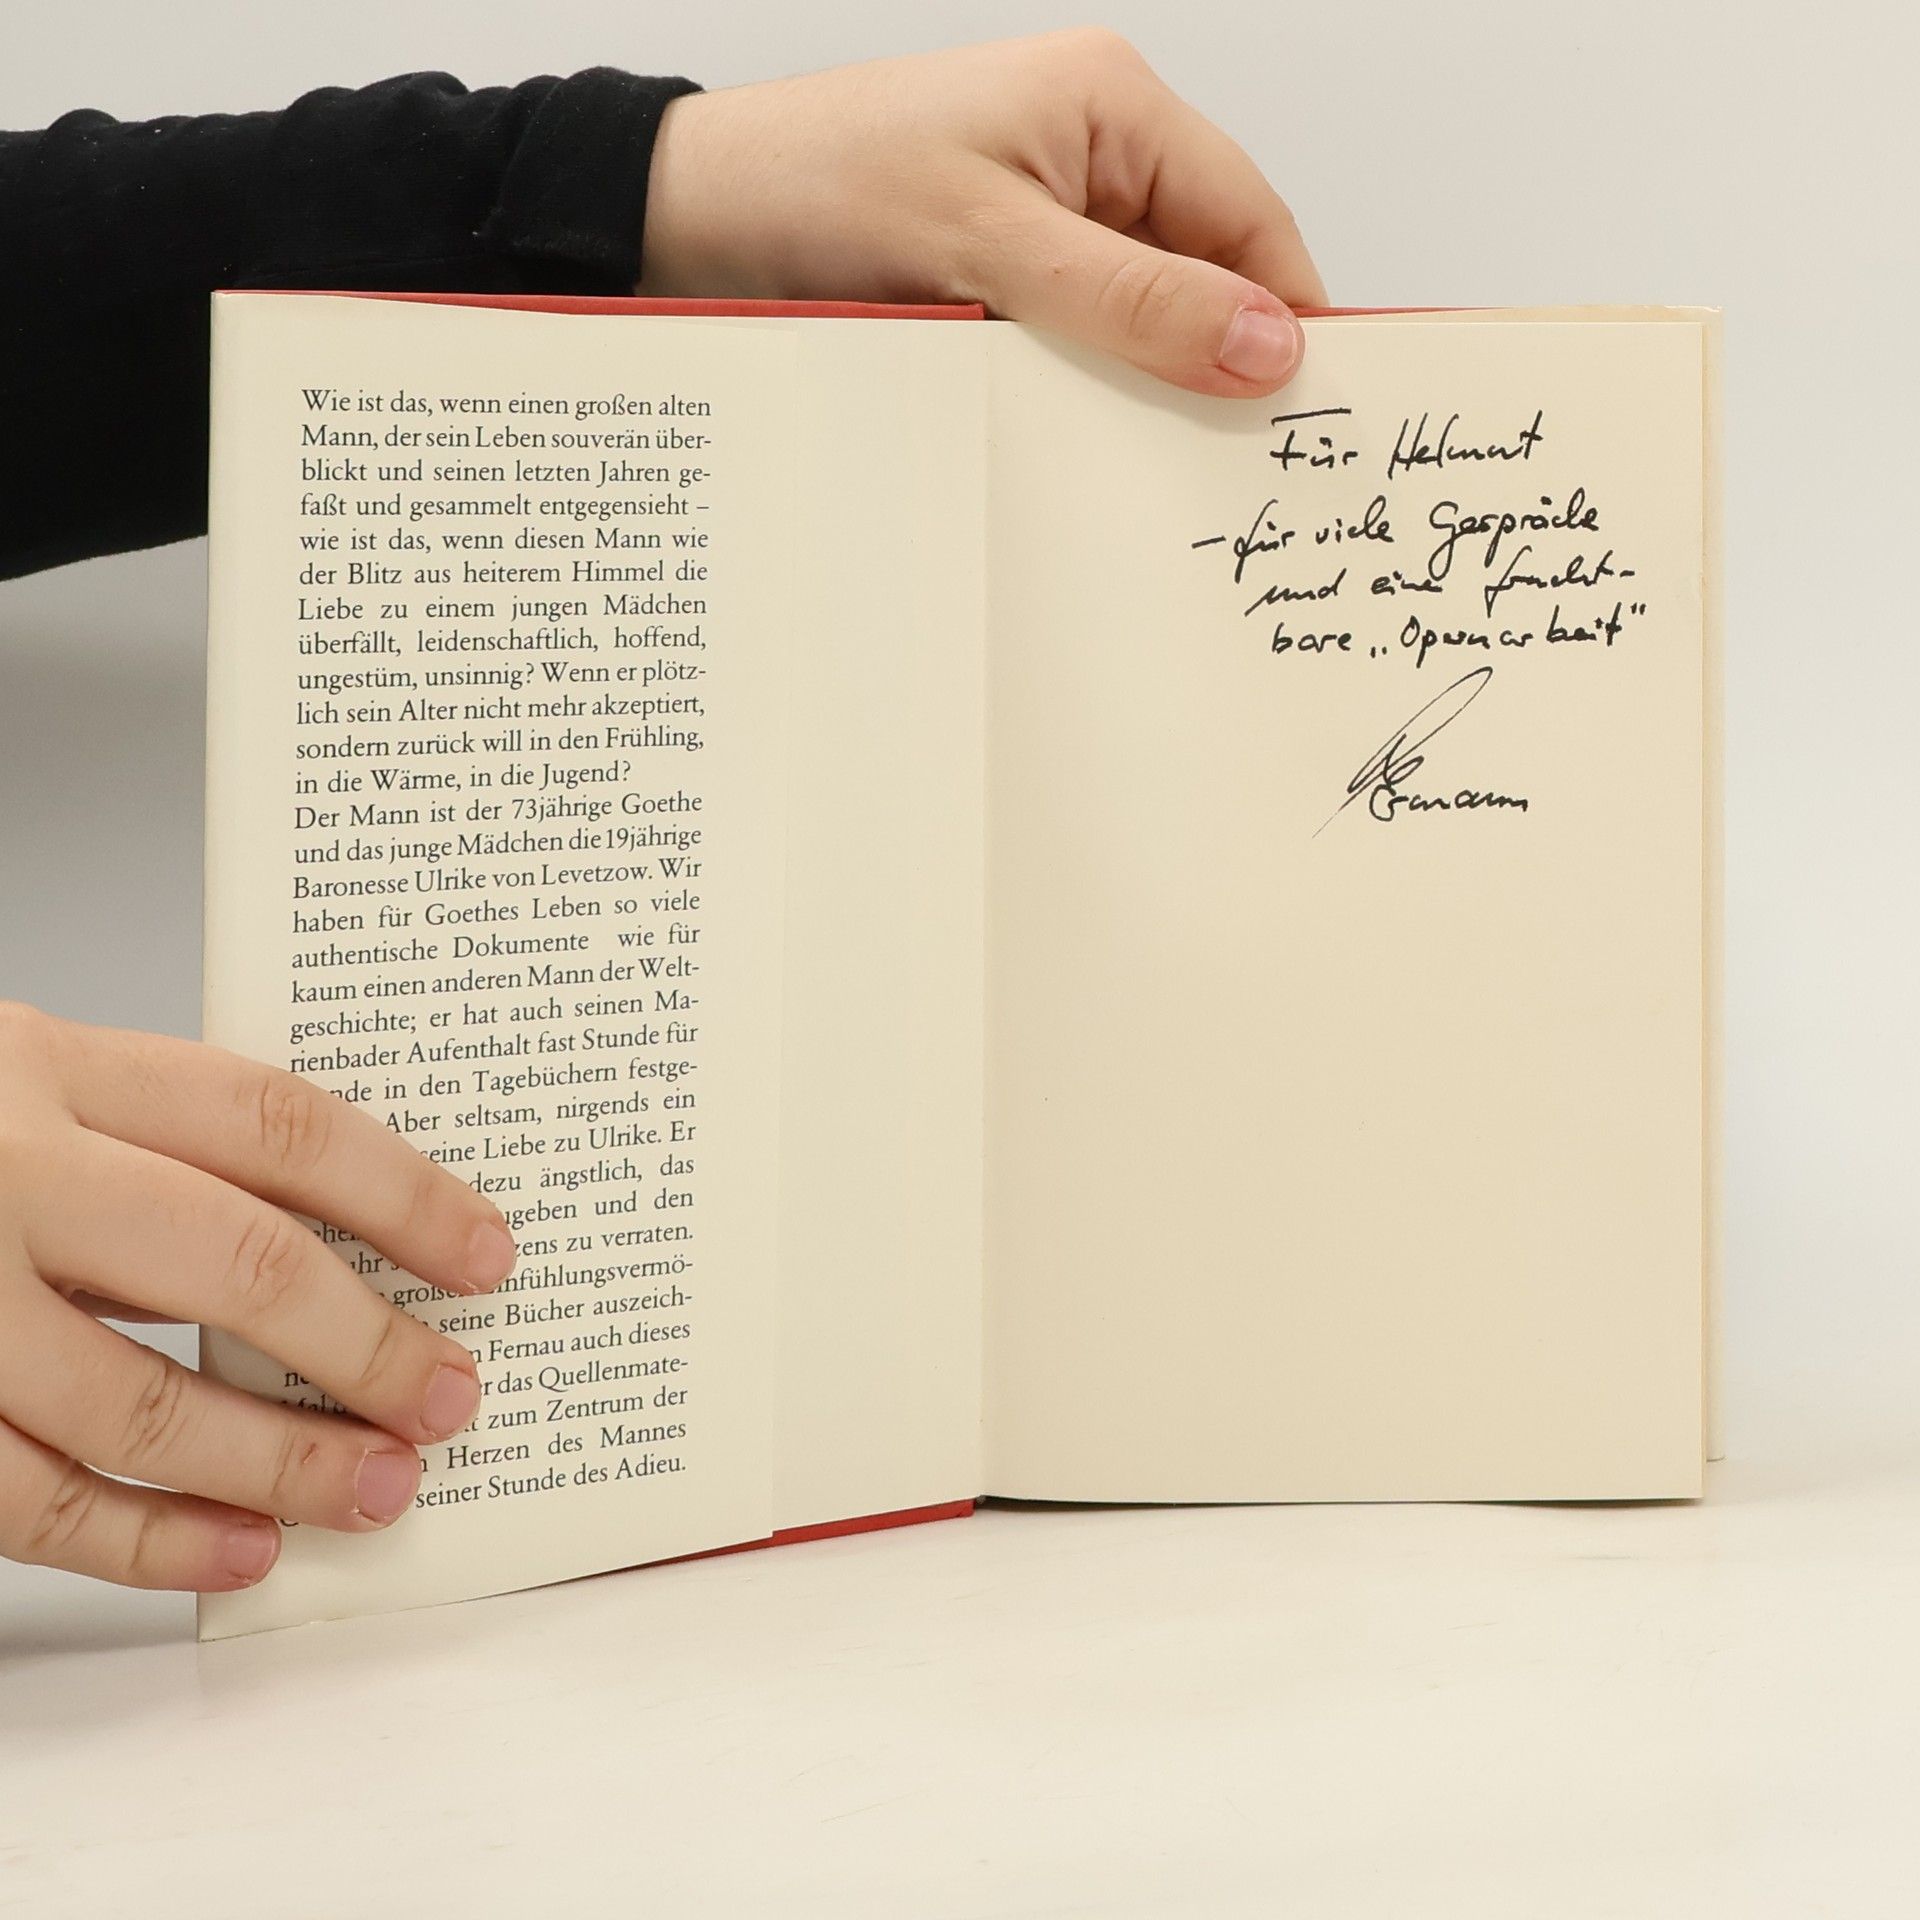 Wie ist das, wenn einen großen alten
Mann, der sein Leben souverän über-
blickt und seinen letzten Jahren ge-
faßt und gesammelt entgegensieht –
wie ist das, wenn diesen Mann wie
der Blitz aus heiterem Himmel die
Liebe zu einem jungen Mädchen
überfällt, leidenschaftlich, hoffend,
ungestüm, unsinnig? Wenn er plötz-
lich sein Alter nicht mehr akzeptiert,
sondern zurück will in den Frühling,
in die Wärme, in die Jugend?
Der Mann ist der 73jährige Goethe
und das junge Mädchen die 19jährige
Baronesse Ulrike von Levetzow. Wir
haben für Goethes Leben so viele
authentische Dokumente wie für
kaum einen anderen Mann der Welt-
geschichte; er hat auch seinen Ma-
rienbader Aufenthalt fast Stunde für
in den Tagebüchern festge-
Aber seltsam, nirgends ein
seine Liebe zu Ulrike. Er
ängstlich, das
und den
zu verraten.
seine Bücher auszeich-
Fernau auch dieses
das Quellenmate-
zum Zentrum der
Herzen des Mannes
seiner Stunde des Adieu.
Für Helmut
– für viele Gespräche
und eine frucht-
bare „Opernarbeit"